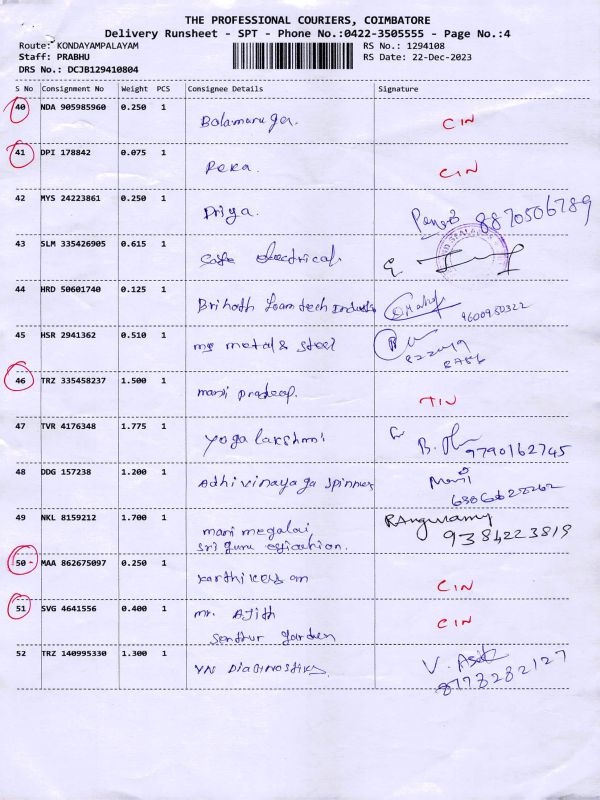 THE PROFESSIONAL COURIERS, COIMBATORE
Delivery Runsheet - SPT - Phone No.:0422-3505555 - Page No.:4
Route: KONDAYAMPALAYAM RS No.: 1294108
Staff: PRABHU RS Date: 22-Dec-2023
DRS No.: DCJB129410804
S No Consignment No Weight PCS Consignee Details Signature
40 NDA 905985960 0.250 1 Balamuruga. CIN
41 DPI 178842 0.075 1 Reka. CIN
42 MYS 24223861 0.250 1 Priya. 8870506789
43 SLM 335426905 0.615 1 electrical.
44 HRD 50601740 0.125 1 Brihath foamtech 9600950322
45 HSR 2941362 0.510 1 metal & steel
46 TRZ 335458237 1.500 1 mani pradeep. TIN
47 TVR 4176348 1.775 1 yoga lakshmi 9790162745
48 DDG 157238 1.200 1 Adhi vinayaga spinners Mani
49 NKL 8159212 1.700 1 mani megalai 9384223819
sri guru
50 MAA 862675097 0.250 1 karthikeyan CIN
51 SVG 4641556 0.400 1 mr. Ajith CIN
Senthur garden
52 TRZ 140995330 1.300 1 VN Diagnostics V. Asik
8778282127